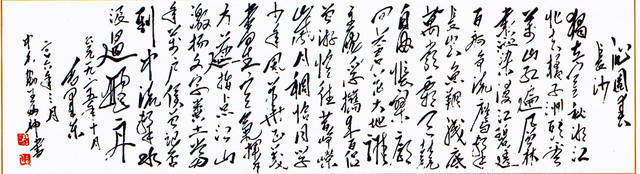 沁园春
长沙
独立寒秋湘江
北去橘子洲头看
万山红遍层林
尽染漫江碧透
百舸争流鹰击
长空鱼翔浅底
万类霜天竞
自由怅寥廓
问苍茫大地谁
主沉浮携来百侣
曾游忆往昔峥嵘
岁月稠恰同学
少年风华正茂
书生意气挥
斥方遒指点江山
激扬文字粪土当
年万户侯曾记否
到中流击水
浪遏飞舟
毛泽东
二〇〇六年三月